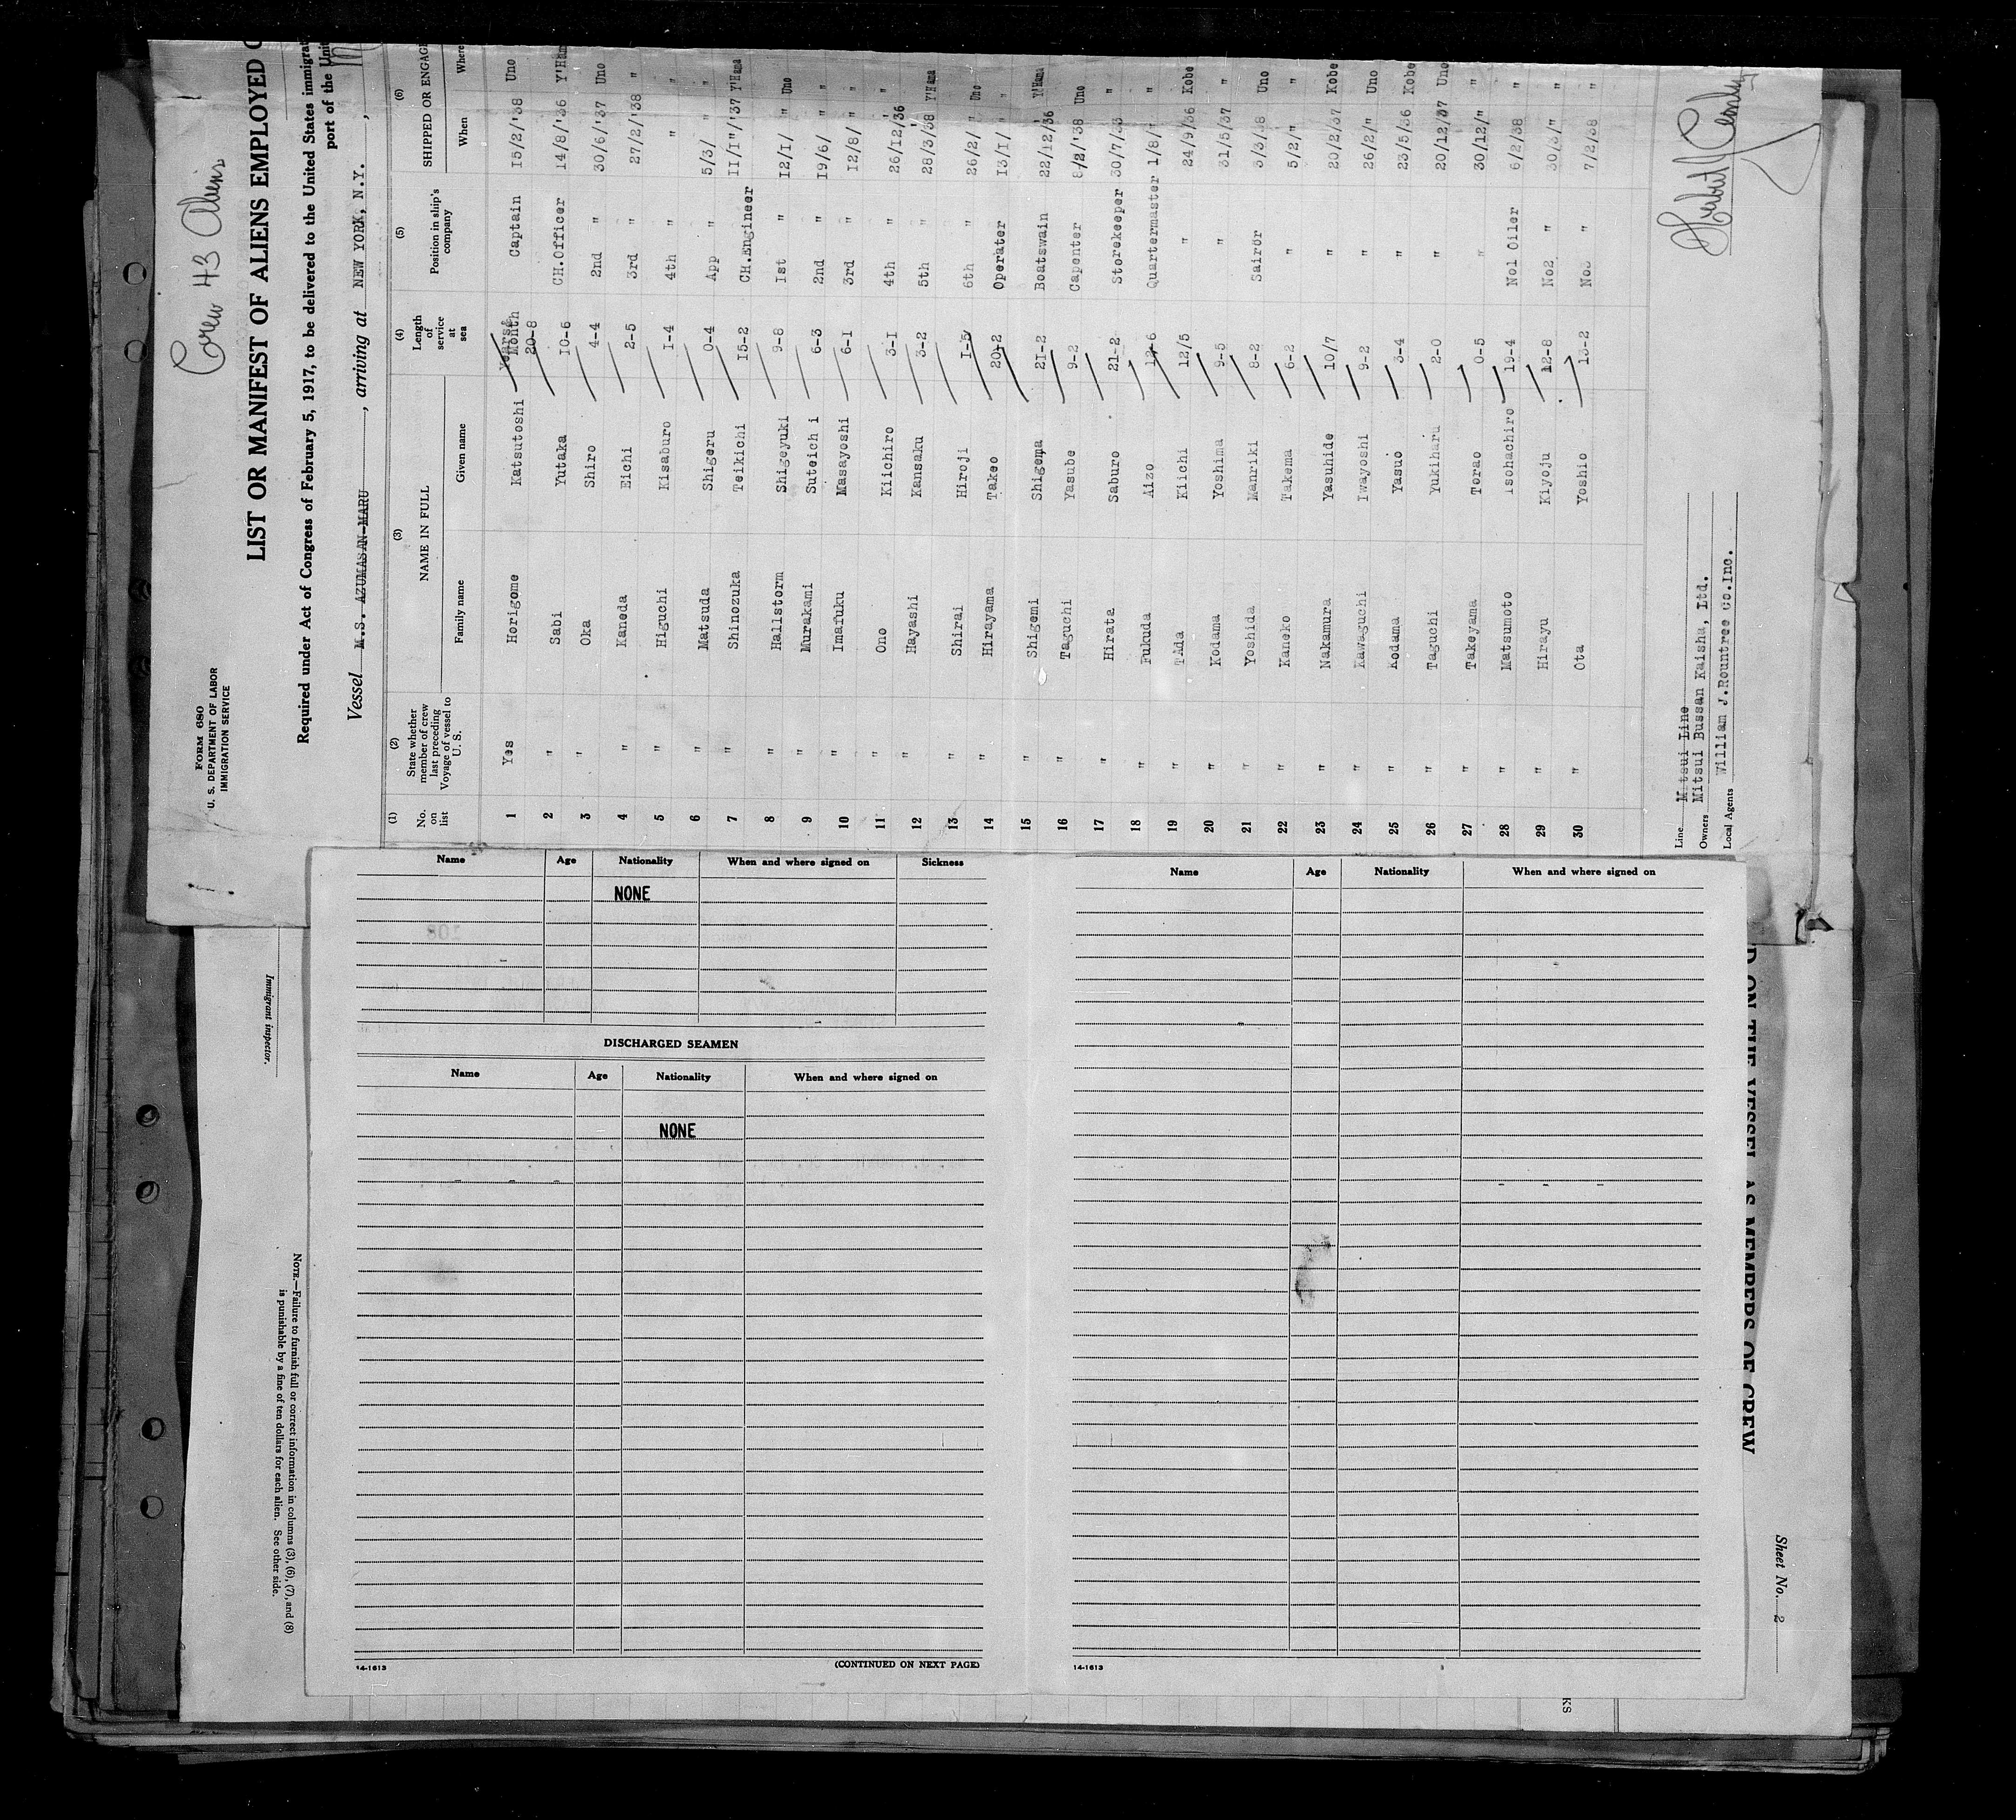 Crew 43 Aliens
FORM 680
U. S. DEPARTMENT OF LABOR
IMMIGRATION SERVICE
LIST OR MANIFEST OF ALIENS EMPLOYED
Required under Act of Congress of February 5, 1917, to be delivered to the United States
port of the
Vessel M.S. AZUMASAN-MARU, arriving at NEW YORK, N.Y.,
(1) (2) (3) (4) (5) (6)
No. on list State whether member of crew last preceding Voyage of vessel to U. S. NAME IN FULL Length of service at sea Position in ship's company SHIPPED OR
Family name Given name When Where
Years& Month
1 Yes Horigome Katsutoshi 20-8 Captain 15/2/'38 Uno
2 " Sabi Yutaka 10-6 CH.Officer 14/8/'36 Y'Hama
3 " Oka Shiro 4-4 2nd " 30/6/'37 Uno
4 " Kaneda Eichi 2-5 3rd " 27/2/'38 "
5 " Higuchi Kisaburo 1-4 4th " " "
6 " Matsuda Shigeru 0-4 App " 5/3/ " "
7 " Shinozuka Teikichi 15-2 CH.Engineer 11/11/'37 Y'Hama
8 " Hallstorm Shigeyuki 9-8 1st " 12/1/ " Uno
9 " Murakami Suteich i 6-3 2nd " 19/6/ " "
10 " Imafuku Masayoshi 6-1 3rd " 12/8/ " "
11 " Ono Kiichiro 3-1 4th " 26/12/36 "
12 " Hayashi Kansaku 3-2 5th " 28/3/38 Y'Hama
13 " Shirai Hiroji 1-5 6th " 26/2/ " Uno
14 " Hirayama Takeo 20-2 Operater 13/1/ " "
15 " Shigemi Shigema 21-2 Boatswain 22/12/36 Y'Hama
16 " Taguchi Yasube 9-2 Capenter 8/2/'38 Uno
17 " Hirata Saburo 21-2 Storekeeper 30/7/33 "
18 " Fukuda Aizo Quartermaster 1/8/" "
19 " TAda Kiichi 12/5 " 24/9/36 Kobe
20 " Kodama Yoshima 9-5 " 31/5/37 "
21 " Yoshida Manriki 8-2 Sairor 3/3/38 Uno
22 " Kaneko Takema 6-2 " 5/2/" "
23 " Nakamura Yasuhide 10/7 " 20/2/37 Kobe
24 " Kawaguchi Iwayoshi 9-2 " 26/2/" Uno
25 " Kodama Yasuo 3-4 " 23/5/36 Kobe
26 " Taguchi Yukiharu 2-0 " 20/12/37 Uno
27 " Takeyama Torao 0-5 " 30/12/" "
28 " Matsumoto Isohachiro 19-4 No1 Oiler 6/2/38 "
29 " Hirayu Kiyoju 12-8 No2 " 30/3/" "
30 " Ota Yoshio 13-2 No3 " 7/2/38 "
Line Mitsui Line
Owners Mitsui Bussan Kaisha, Ltd.
Local Agents William J.Rountree Co.Inc.
Name Age Nationality When and where signed on Sickness
NONE
DISCHARGED SEAMEN
Name Age Nationality When and where signed on
NONE
14-1613
(CONTINUED ON NEXT PAGE)
Name Age Nationality When and where signed on
14-1613
Immigrant inspector.
NOTE.—Failure to furnish full or correct information in columns (3), (6), (7), and (8)
is punishable by a fine of ten dollars for each alien. See other side.
ON THE VESSEL AS MEMBERS OF CREW
Sheet No. 2